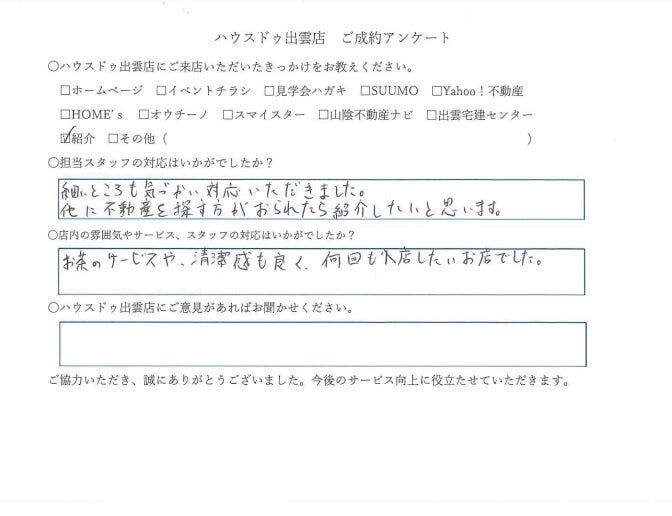 ハウスドゥ出雲店　ご成約アンケート
○ハウスドゥ出雲店にご来店いただいたきっかけをお教えください。
□ホームページ　□イベントチラシ　□見学会ハガキ　□SUUMO　□Yahoo！不動産
□HOME's　□オウチーノ　□スマイスター　□山陰不動産ナビ　□出雲宅建センター
☑紹介　□その他（　　　　　　　　　　　　　　　　　　　　）
○担当スタッフの対応はいかがでしたか？
細いところも気づかい対応いただきました。
他に不動産を探す方がおられたら紹介したいと思います。
○店内の雰囲気やサービス、スタッフの対応はいかがでしたか？
お茶のサービスや、清潔感も良く、何回も入店したいお店でした。
○ハウスドゥ出雲店にご意見があればお聞かせください。
ご協力いただき、誠にありがとうございました。今後のサービス向上に役立たせていただきます。